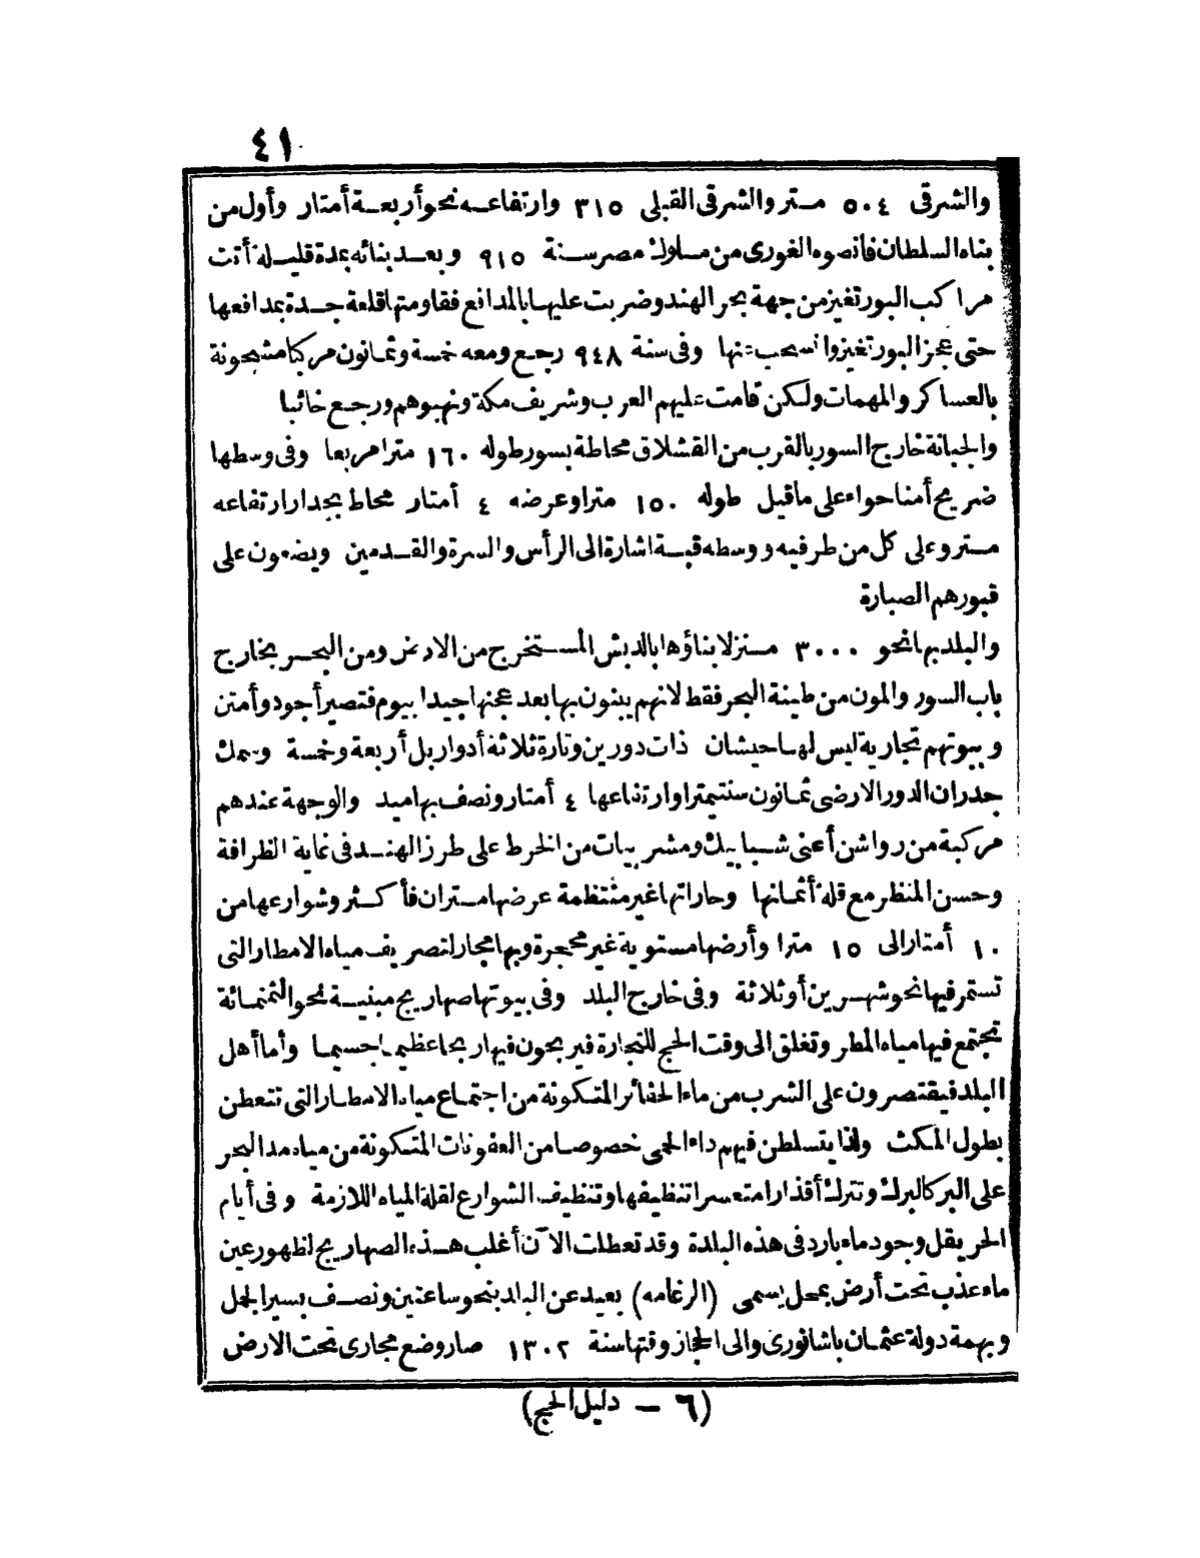 ٤١
والشرقى ٥٠٤ متر والشرقى القبلى ٣١٥ وارتفاعه نحو أربعة أمتار وأول من
بناه السلطان قانصوه الغورى من ملوك مصر سنة ٩١٥ وبعد بنائه بمدة قليلة أتت
مراكب البورتغيز من جهة بحر الهند وضربت عليها بالمدافع فقاومتها قلعة جدة بمدافعها
حتى عجز البورتغيز وانسحب عنها وفى سنة ٩٤٨ رجع ومعه خمسة وثمانون مركبا مشحونة
بالعساكر والمهمات ولكن قامت عليهم العرب وشريف مكة ونهبوهم ورجع خائبا
والجبانة خارج السور بالقرب من القشلاق محاطة بسور طوله ١٦٠ مترا مربعا وفى وسطها
ضريح أمنا حواء على ما قيل طوله ١٥٠ مترا وعرضه ٤ أمتار محاط بجدار ارتفاعه
متر وعلى كل من طرفيه ووسطه قبة اشارة الى الرأس والسرة والقدمين ويضعون على
قبورهم الصبارة
والبلد بها نحو ٣٠٠٠ منزلا بناؤها بالدبش المستخرج من الارض ومن البحر بخارج
باب السور والمون من طينة البحر فقط لانهم يبنون بها بعد عجنها جيدا بيوم فتصير أجود وأمتن
وبيوتهم تجارية ليس لها حيشان ذات دورين وتارة ثلاثة أدوار بل أربعة وخمسة وسمك
جدران الدور الارضى ثمانون سنتيمترا وارتفاعها ٤ أمتار ونصف بها ميد والوجهة عندهم
مركبة من رواشن أعنى شبابيك ومشربيات من الخرط على طرز الهند فى غاية الظرافة
وحسن المنظر مع قلة أثمانها وحاراتها غير منتظمة عرضها متران فأكثر وشوارعها من
١٠ أمتار الى ١٥ مترا وأرضها مستوية غير محجرة وبها مجار لتصريف مياه الامطار التى
تستمر فيها نحو شهرين أو ثلاثة وفى خارج البلد وفى بيوتها صهاريج مبنية نحو الثمنمائة
تجتمع فيها مياه المطر وتغلق الى وقت الحج للتجارة فيربحون فيها ربحا عظيما جسيما وأما أهل
البلد فيقتصرون على الشرب من ماء الحفائر المتكونة من اجتماع مياه الامطار التى تتعطن
بطول المكث ولذا يتسلطن فيهم داء الحمى خصوصا من العفونات المتكونة من مياه مد البحر
على البر كالبرك وتترك أقذارا متعسرا تنظيفها وتنظيف الشوارع لقلة المياه اللازمة وفى أيام
الحر يقل وجود ماء بارد فى هذه البلدة وقد تعطلت الآن أغلب هذه الصهاريج لظهور عين
ماء عذب تحت أرض بمحل يسمى (الرغامه) بعيد عن البلد بنحو ساعتين ونصف بسير الجمل
وبهمة دولة عثمان باشا نورى والى الحجاز وقتها سنة ١٣٠٢ صار وضع مجارى تحت الارض
(٦ — دليل الحج)